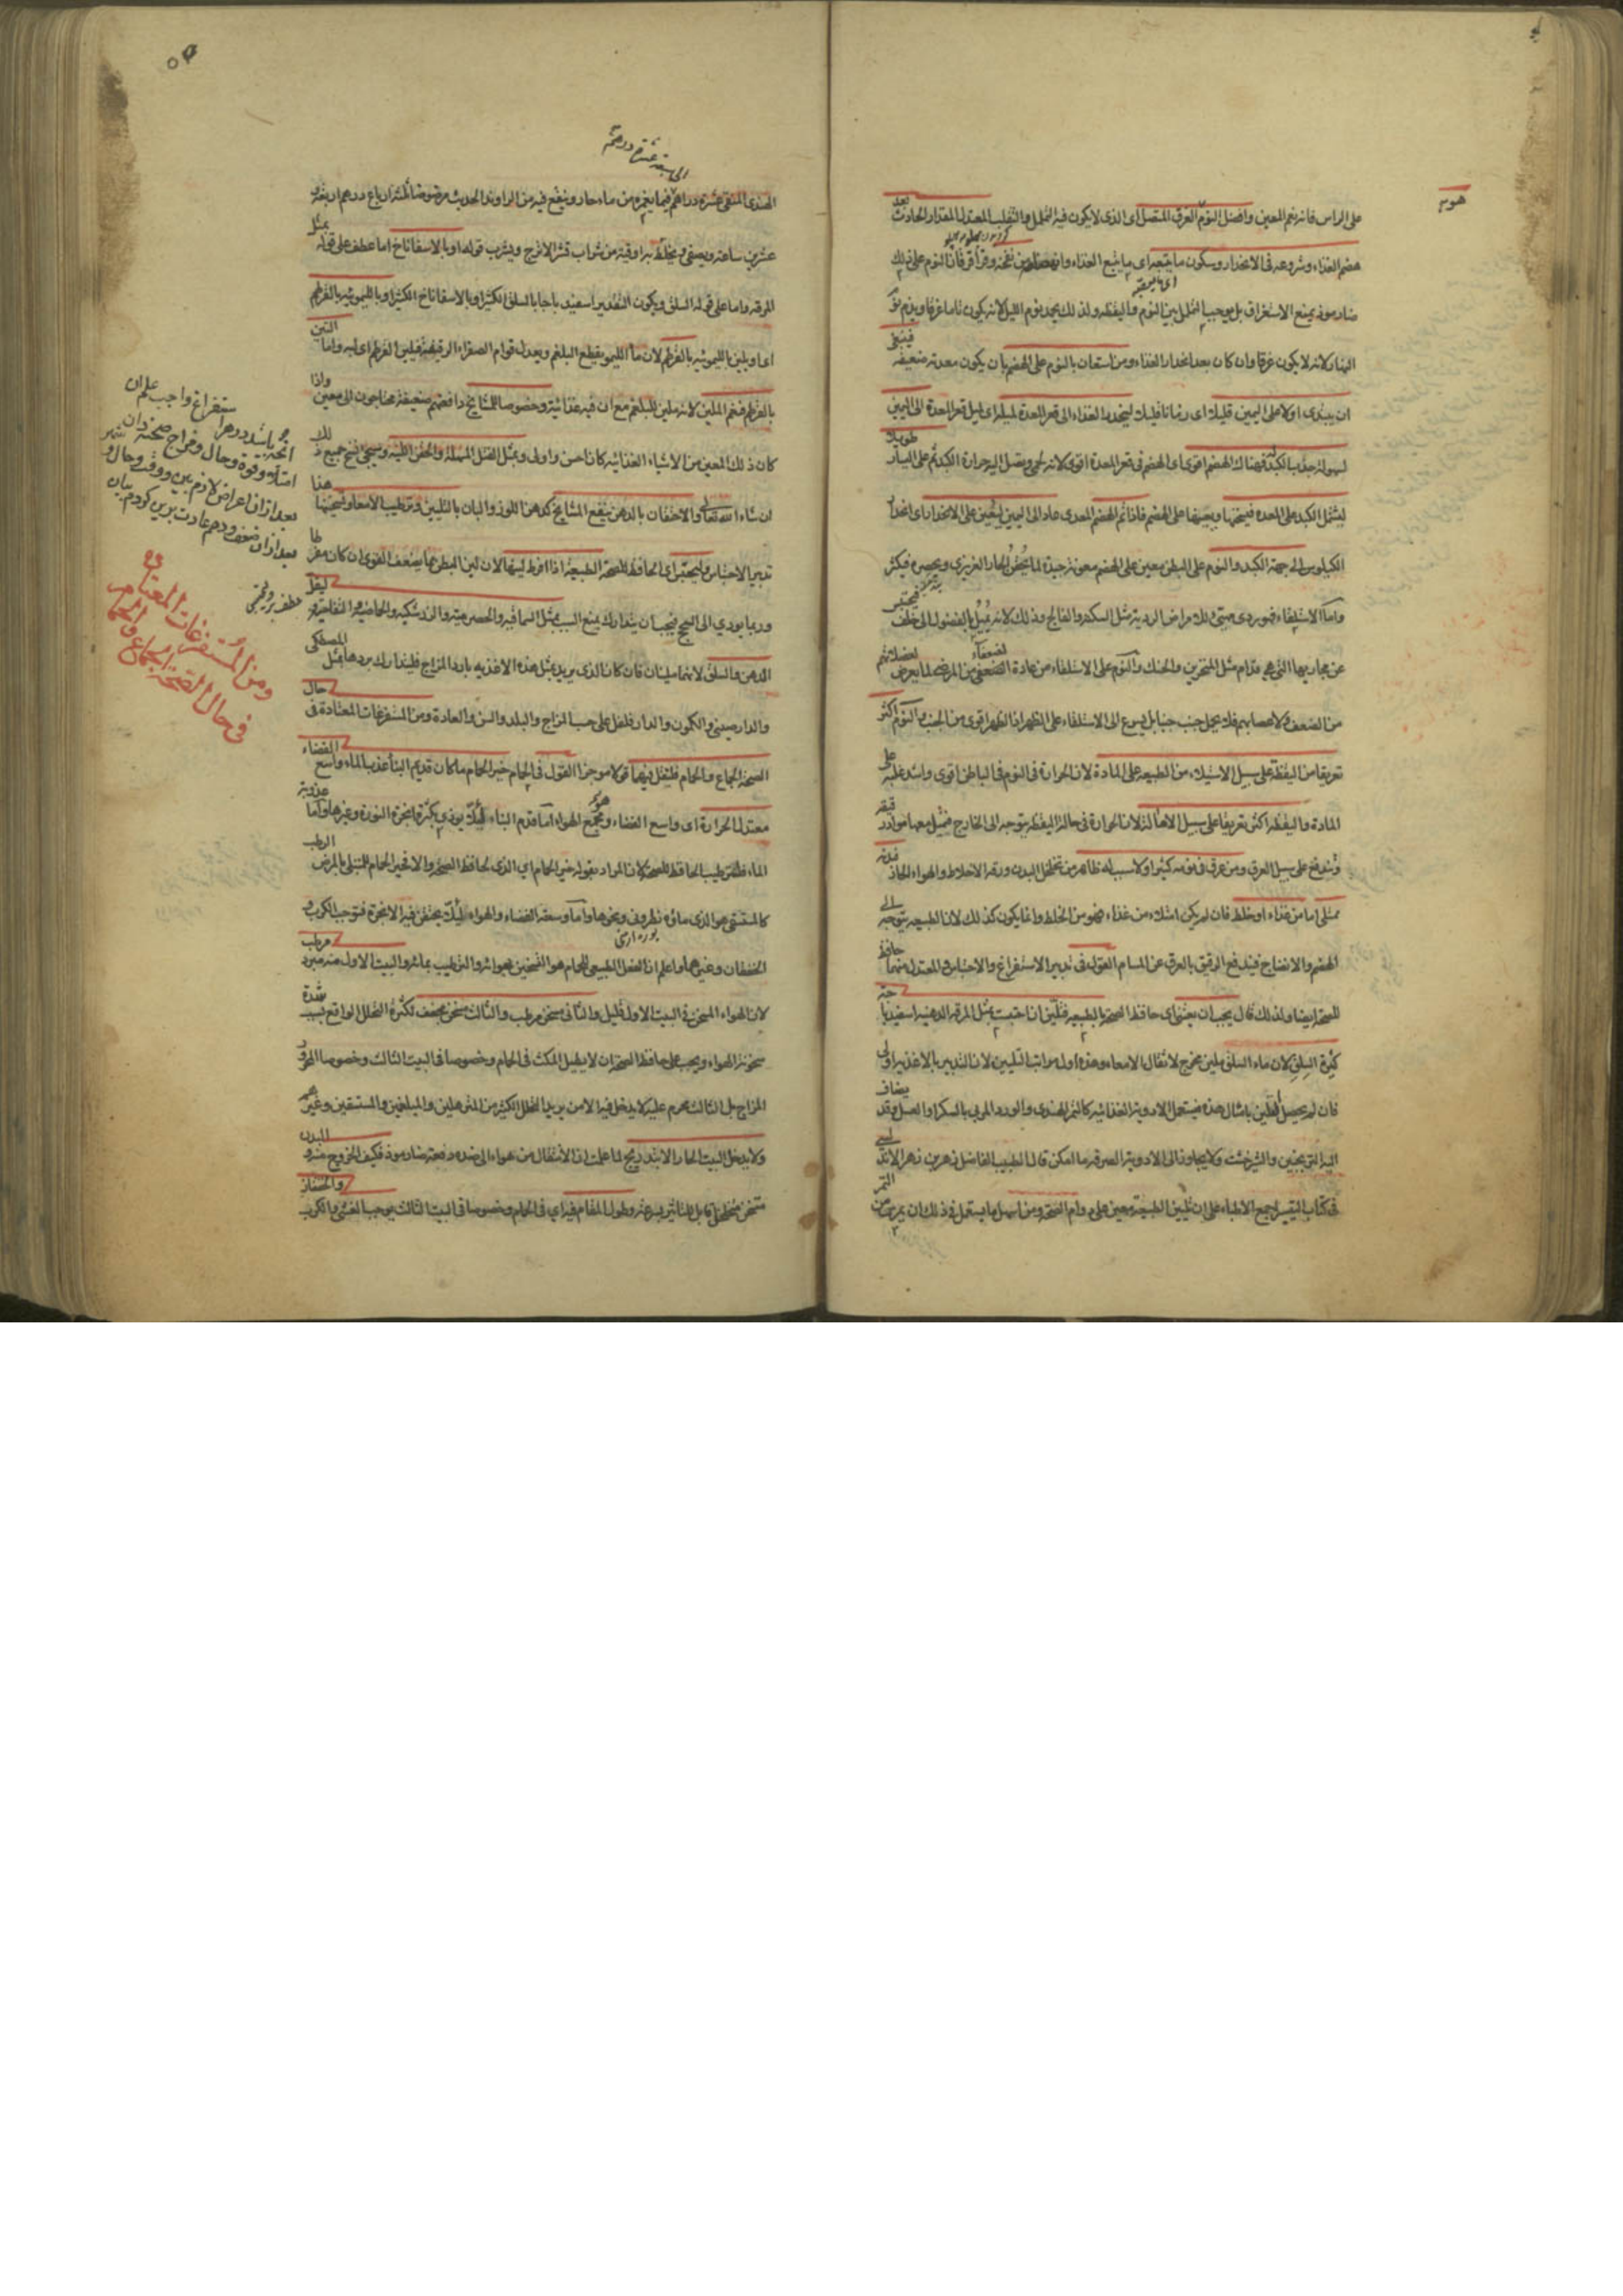 على الراس فانه نعم المعين وافضل النوم الغرق المتصل اى الذى لا يكون فيه التململ والتقلب المعتدل المقدار الحادث بعد
هضم الغذاء وشروعه فى الانحدار وسكون ما يتبعه اى ما يتبع الغذاء من نفخة وقراقر فان النوم على ذلك
ضار موذ يمنع الاستغراق بل يوجب التململ بين النوم واليقظة ولذلك يجد نوم الليل لانه يكون تاما غرقا ويذم نوم
النهار لانه لا يكون غرقا وان كان بعد انحدار الغذاء ومن استعان بالنوم على الهضم بان يكون معدته ضعيفة فينبغى
ان يبتدى اولا على اليمين قليلا اى زمانا قليلا لينحدر الغذاء الى قعر المعدة لميله اى لميل قعر المعدة الى اليمين
لسهولة جذب الكبد فهناك الهضم اقوى اى الهضم فى قعر المعدة اقوى لانه لحمى ويصل اليه حرارة الكبد ثم على اليسار طويلا
ليشتمل الكبد على المعدة فيسخنها ويعينها على الهضم فاذا تم الهضم المعدى عاد الى اليمين ليعين على الانحدار اى انحدار
الكيلوس الى جهة الكبد والنوم على البطن معين على الهضم معونة جيدة لما يحقن الحار الغريزى ويحصره فيكثر
واما الاستلقاء فهو ردى مهيئ للامراض الردية مثل السكتة والفالج وذلك لانه يميل بالفضول الى خلف فيحتبس
عن مجاريها التى هى قدام مثل المنخرين والحنك والنوم على الاستلقاء من عادة الضعفى من المرضى لما يعرض لعضلاتهم
من الضعف ولاعصابهم فلا يحمل جنب جنبا بل يسرع الى الاستلقاء على الظهر اذ الظهر اقوى من الجنب والنوم اكثر
تعريقا من اليقظة على سبيل الاستيلاء من الطبيعة على المادة لان الحرارة فى النوم فى الباطن اقوى واشد غلبة على
المادة واليقظة اكثر تعريقا على سبيل الاسالة لان الحرارة فى حالة اليقظة يتوجه الى الخارج فيميل معها مواد رقيقة
وتندفع على سبيل العرق ومن عرق فى نومه كثيرا ولا سبب له ظاهر من تخلخل البدن ورقة الاخلاط والهواء الحار فبدنه
ممتلى اما من غذاء او خلط فان لم يكن امتلاء من غذاء فهو من الخلط وانما يكون كذلك لان الطبيعة يتوجه الى
الهضم والانضاج فيندفع الرقيق بالعرق عن المسام القول فى تدبير الاستفراغ والاحتباس والمعتدل منهما حافظ
للصحة ايضا ولذلك قال يجب ان يعتنى اى حافظ الصحة بالطبيعة فتلين ان احتبست بمثل المرقة الدهنية اسفيدباجة
كثيرة السلق لان ماء السلق ملين مخرج لاثقال الامعاء وهذه اول مراتب التليين لان التدبير بالاغذية اولى
فان لم يحصل التليين بامثال هذه فيستعمل الادوية الغذائية كالتمر الهندى والورد المربى بالسكر او العسل وقد يضاف
اليه الترنجبين والشيرخشت ولا يتجاوز الى الادوية الصرفة ما امكن قال الطبيب الفاضل زهر بن زهر الاندلسى
فى كتاب التيسير اجمع الاطباء على ان تليين الطبيعة معين على دوام الصحة ومن اسهل ما يستعمل فى ذلك ان يمرس من التمر
الى سبعة عشر درهم
الهندى المنقى عشرة دراهم فيما يغمره من ماء حار وينقع فيه من الراوند الحديث مرضوضا ثلثة ارباع درهم اربعة و
عشرين ساعة ويصفى ويخلط به اوقية من شراب قشر الاترج ويشرب قوله او بالاسفاناخ اما عطف على قوله بمثل
المرقة واما على قوله السلق ويكون التقدير اسفيدباجا بالسلق الكثير او بالاسفاناخ الكثير او بالليمونية بالقرطم
اى او يلين بالليمونية بالقرطم لان ماء الليمو يقطع البلغم ويعدل قوام الصفراء الرقيقة فيلين القرطم اى لبه واما التين
بالقرطم فنعم الملين لانه ملين للبلغم مع ان فيه غذائية وخصوصا للمشايخ دافعتهم ضعيفة محتاجون الى معين واذا
كان ذلك المعين من الاشياء الغذائية كان احسن واولى وبمثل الفتل المسهلة والحقن اللينة وسيجئ شرح جميع ذلك
ان شاء الله تعالى والاحتقان بالدهن ينفع المشايخ كدهن اللوز والبان بالتليين وترطيب الامعاء وتسخينها هذا
تدبير الاحتباس وليحتبس اى الحافظ للصحة الطبيعة اذا افرط لينها لان لين البطن مما يضعف القوى ان كان مفرطا
وربما يودى الى السحج فيجب ان يتدارك بمنع السبب بمثل السماقية والحصرمية والزرشكية والحماضية والتفاحية
الدهن والسلق لانهما ملينان فان كان الذى يريد بمثل هذه الاغذية بارد المزاج فليتدارك بردها بمثل المصطكى
والدارصينى والكمون والدارفلفل على حسب المزاج والبلد والسن والعادة ومن المستفرغات المعتادة فى حال
الصحة الجماع والحمام فلنقل فيهما قولا موجزا القول فى الحمام خير الحمام ما كان قديم البناء عذب الماء واسع الفضاء
معتدل الحرارة اى واسع الفضاء ومجمع الهواء اما قدم البناء لئلا يوذى بكثرة ابخرة النورة وغيرها واما عذوبة
الماء فلترطيب الحافظ للصحة لان المراد بقوله خير الحمام اى الذى لحافظ الصحة والا فخير الحمام للمبتلى بالمرض الرطب
كالمستسقى هو الذى ماؤه نطرونى ونحوها واما وسعة الفضاء والهواء لئلا يحتقن فيه الابخرة فتوجب الكرب و
الخفقان وغيرهما واعلم ان الفعل الطبيعى للحمام هو التسخين بهوائه والترطيب بمائه والبيت الاول منه مبرد مرطب
لان الهواء المسخن فى البيت الاول قليل والثانى مسخن مرطب والثالث مسخن مجفف لكثرة التحلل الواقع بسبب شدة
سخونة الهواء ويجب على حافظ الصحة ان لا يطيل المكث فى الحمام وخصوصا فى البيت الثالث وخصوصا المحرور
المزاج بل الثالث محرم عليه لا يدخل فيه الا من يريد التحلل الكثير من المترهلين والمبلغمين والمستسقين وغيرهم
ولا يدخل البيت الحار الا بتدريج لما علمت ان الانتقال من هواء الى ضده دفعة ضار موذ فكيف الخروج منه والبدن
متسخن متخلخل قابل للتاثير بسرعة وطول المقام فيه اى فى الحمام وخصوصا فى البيت الثالث يوجب الغشى والكرب والخفقان
عطف بر وليحتبس
ومن المستفرغات المعتادة
فى حال الصحة الجماع والحمام